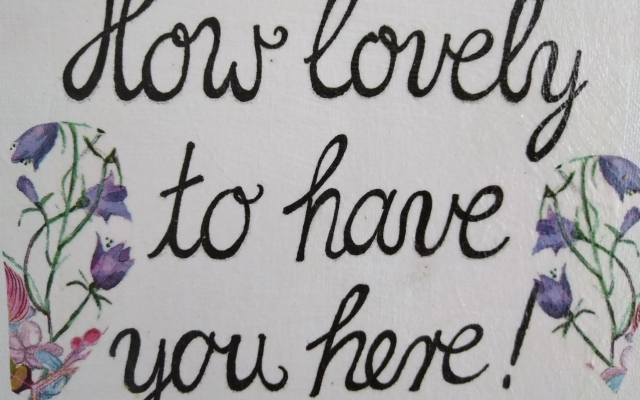 How lovely
to have
you here!